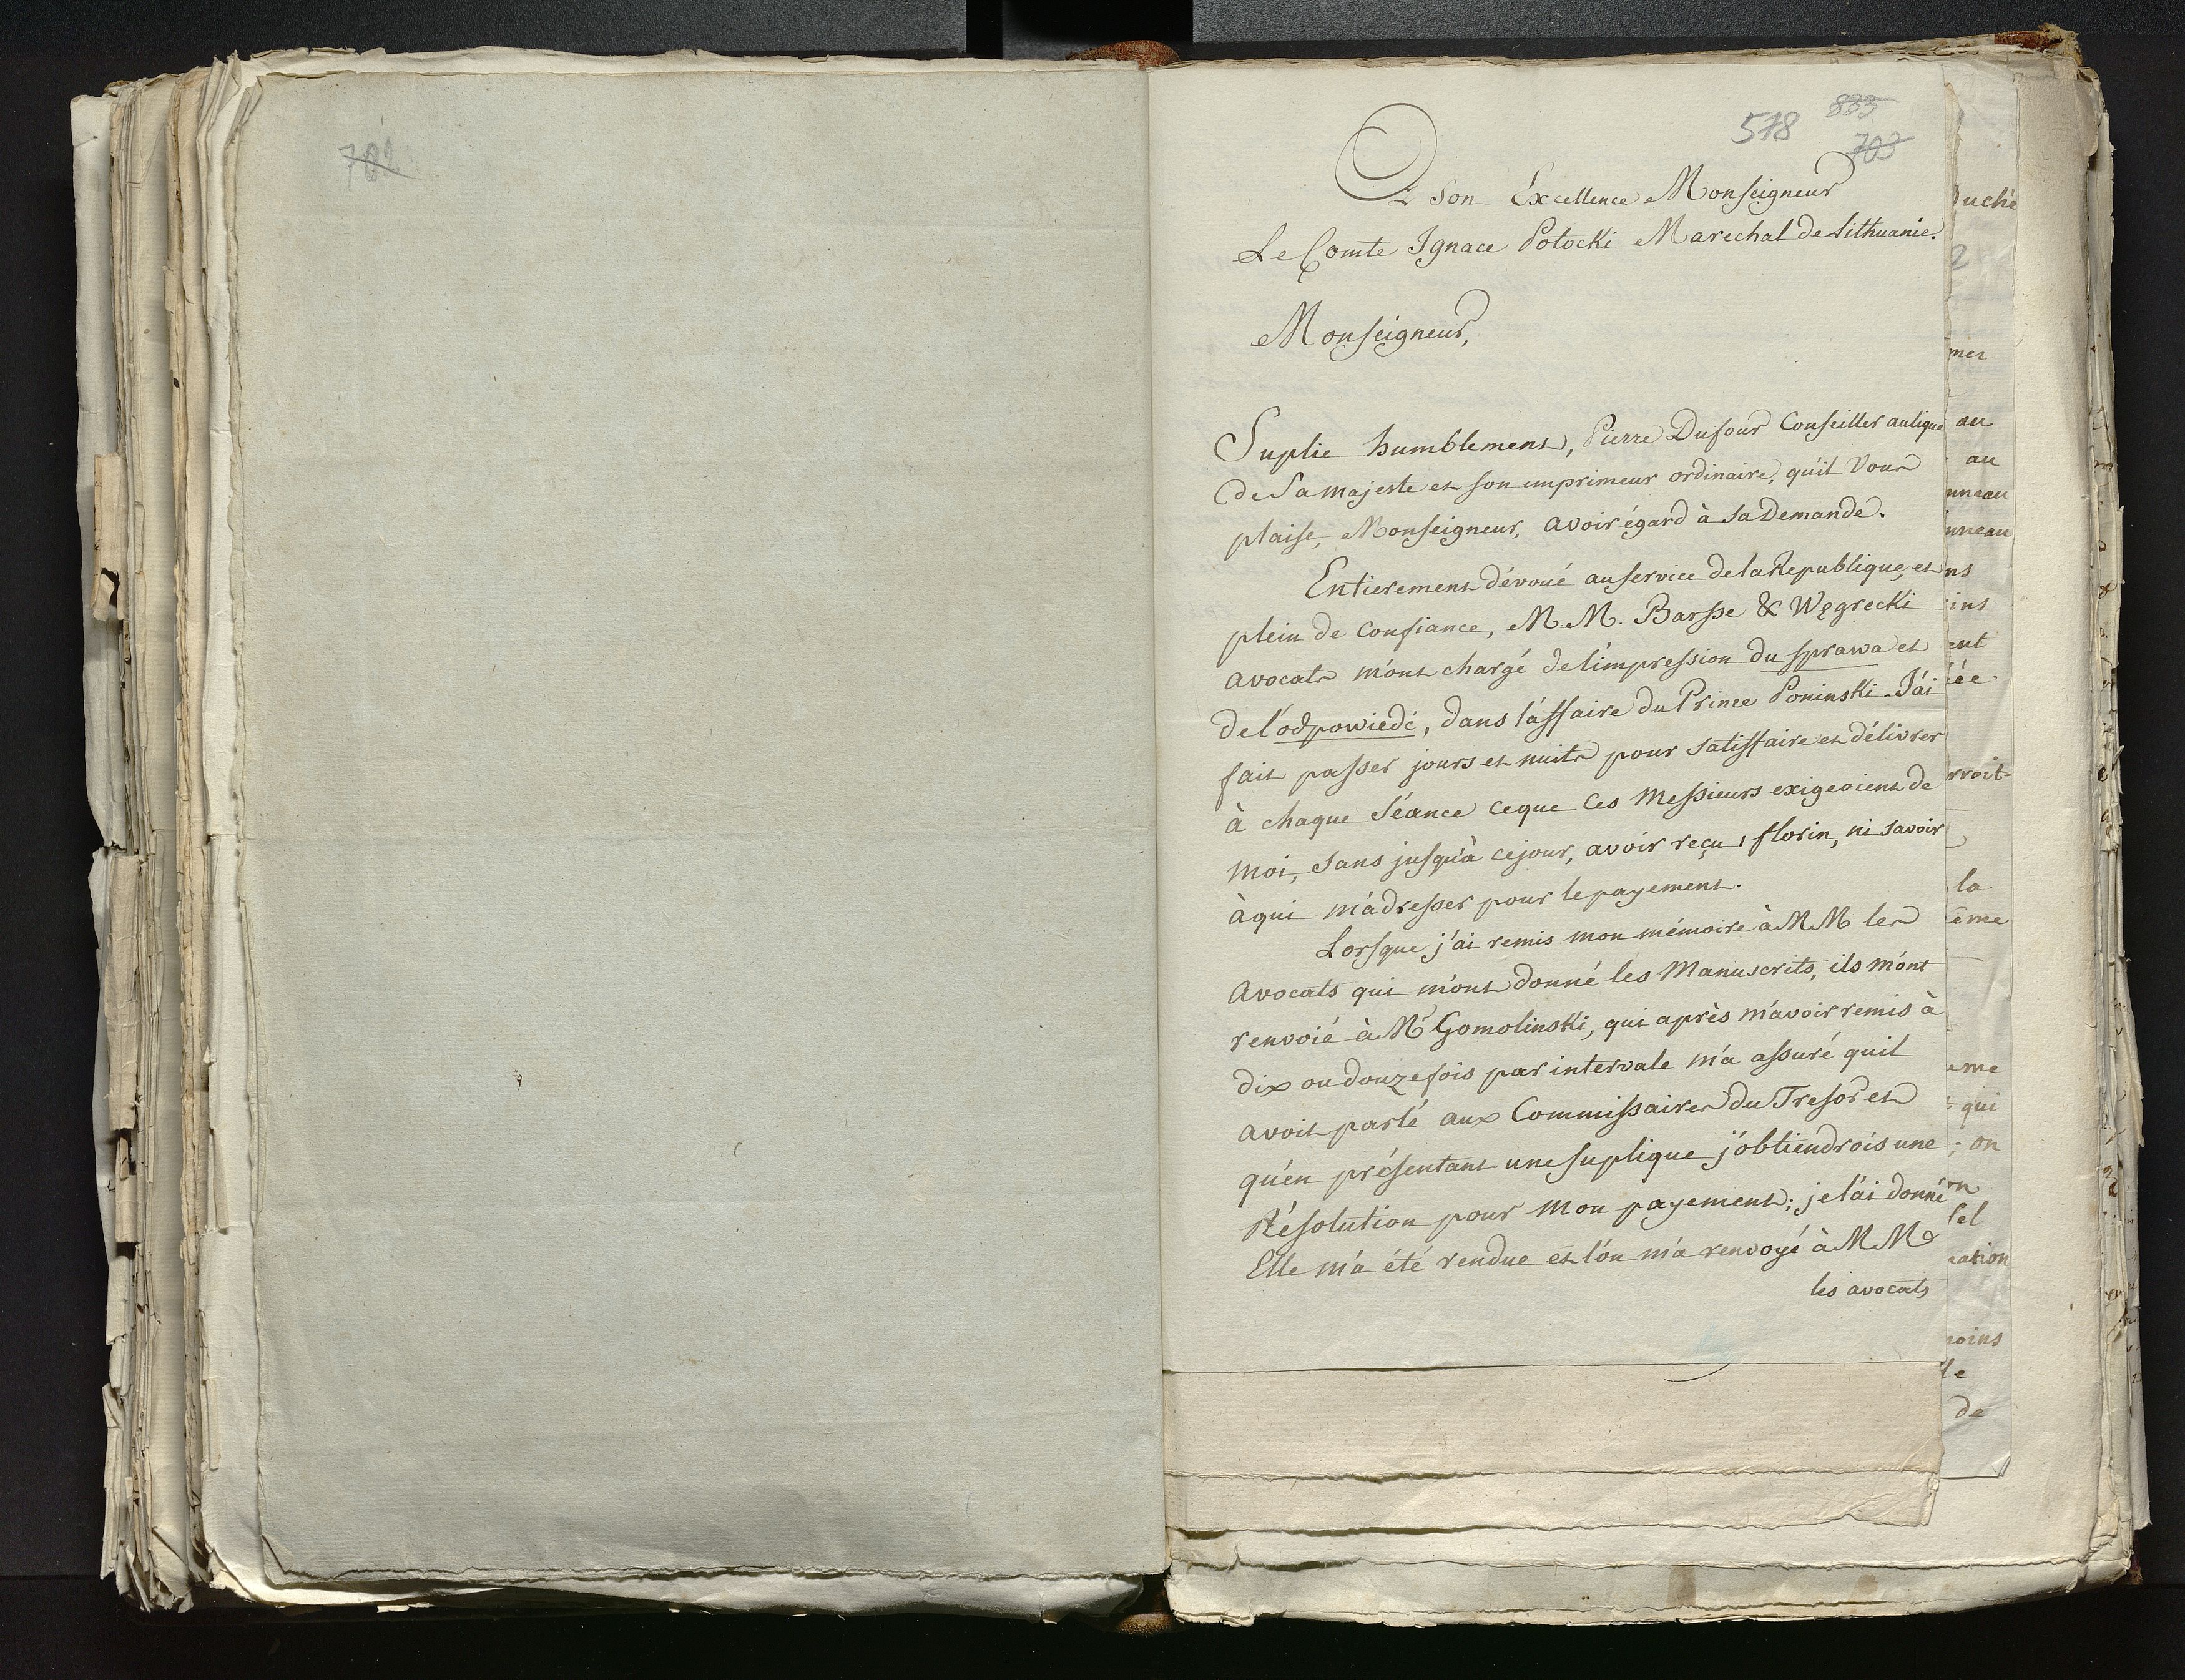 702
578 833
703
A Son Excellence Monseigneur
Le Comte Ignace Potocki Marechal de Lithuanie.
Monseigneur,
Suplie humblement, Pierre Dufour Conseiller aulique
de Sa Majeste et son imprimeur ordinaire, qu'il Vous
plaise, Monseigneur, avoir égard à sa Demande.
Entierement dévoué au service de la Republique, et
plein de confiance, M.M. Barsse & Węgrecki
avocats m'ont chargé de l'impression du sprawa et
de l'odpowiedć, dans l'affaire du Prince Poninski. J'ai
fait passer jours et nuits pour satisfaire et délivrer
à chaque Séance ce que ces Messieurs exigeoient de
moi, sans jusqu'à ce jour, avoir reçu 1 florin, ni savoir
à qui m'adresser pour le payement.
Lorsque j'ai remis mon mémoire à MM les
avocats qui m'ont donné les Manuscrits, ils m'ont
renvoié à Mr Gomolinski, qui après m'avoir remis à
dix ou douze fois par intervale m'a assuré qu'il
avoit parlé aux Commissaires du Tresor et
qu'en présentant une suplique j'obtiendrois une
Résolution pour mon payement; je l'ai donné
Elle m'a été rendue et l'on m'a renvoyé à MM
les avocats
uché
2
mer
au
au
nneau
nneau
ns
ins
ent
iée
rroit
la
ême
eme
qui
; on
on
sel
nation
moins
le
de